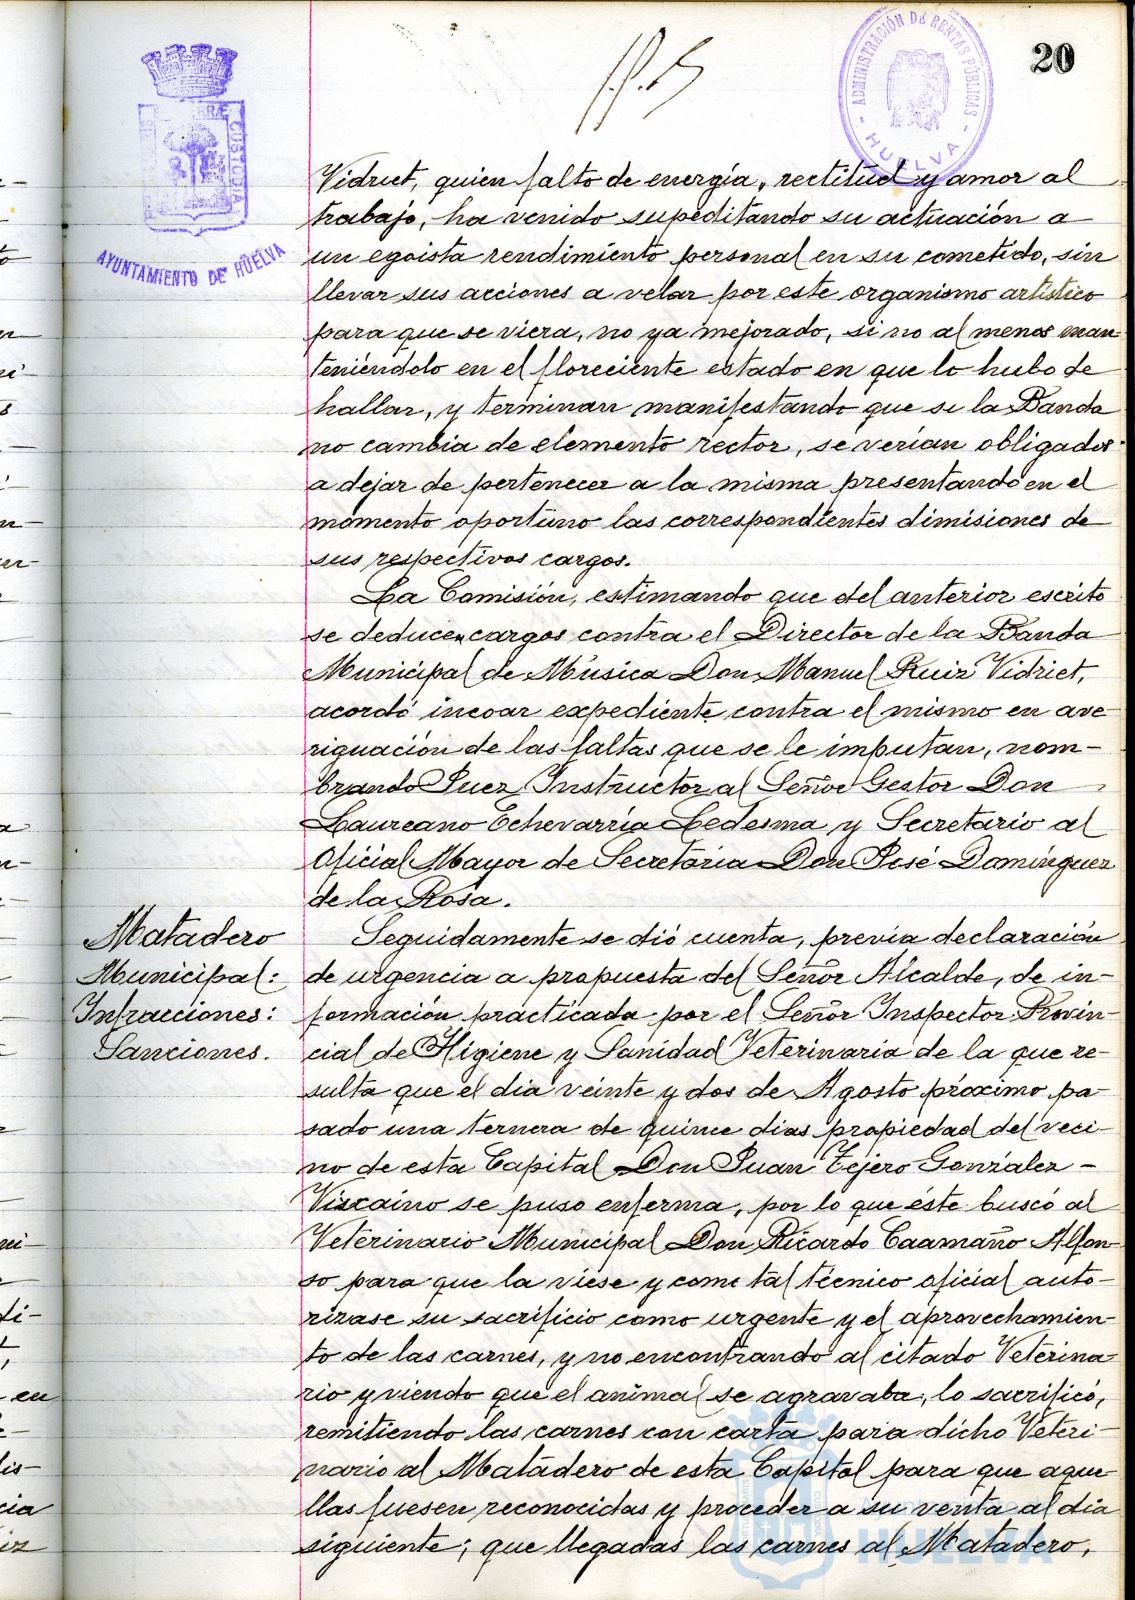 20
ADMINISTRACIÓN DE RENTAS PÚBLICAS
- HUELVA -
CUSTODIA
AYUNTAMIENTO DE HUELVA
Vidriet, quien falto de energía, rectitud y amor al
trabajo, ha venido supeditando su actuación a
un egoista rendimiento personal en su cometido, sin
llevar sus acciones a velar por este organismo artístico
para que se viera, no ya mejorado, si no al menos man-
teniéndolo en el floreciente estado en que lo hubo de
hallar, y terminan manifestando que si la Banda
no cambia de elemento rector, se verían obligados
a dejar de pertenecer a la misma presentando en el
momento oportuno las correspondientes dimisiones de
sus respectivos cargos.
La Comisión, estimando que del anterior escrito
se deducen cargos contra el Director de la Banda
Municipal de Música Don Manuel Ruiz Vidriet,
acordó incoar expediente contra el mismo en ave
riguación de las faltas que se le imputan, nom-
brando Juez Instructor al Señor Gestor Don
Laureano Echevarría Ledesma y Secretario al
Oficial Mayor de Secretaria Don José Domínguez
de la Rosa.
Matadero
Municipal:
Infracciones:
Sanciones.
Seguidamente se dió cuenta, previa declaración
de urgencia a propuesta del Señor Alcalde, de in-
formación practicada por el Señor Inspector Provin-
cial de Higiene y Sanidad Veterinaria de la que re-
sulta que el dia veinte y dos de Agosto próximo pa-
sado una ternera de quince dias propiedad del veci-
no de esta Capital Don Juan Tejero González -
Vizcaino se puso enferma, por lo que éste buscó al
Veterinario Municipal Don Ricardo Caamaño Alfon-
so para que la viese y como tal técnico oficial auto-
rizase su sacrificio como urgente y el aprovechamien-
to de las carnes, y no encontrando al citado Veterina
rio y viendo que el animal se agravaba, lo sacrificó,
remitiendo las carnes con carta para dicho Veteri-
nario al Matadero de esta Capital para que aque-
llas fuesen reconocidas y proceder a su venta al dia
siguiente; que llegadas las carnes al Matadero,
HUELVA